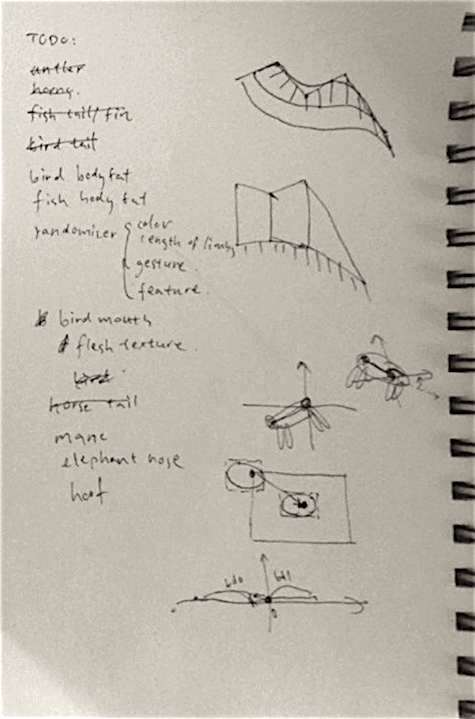 TODO:
antler
horns.
fish tail/fin
bird tail
bird body fat
fish body fat
randomizer { color
length of limbs
gesture.
feature.
bird mouth
flesh texture.
bird
horse tail
mane
elephant nose
hoof
bd0 bd1